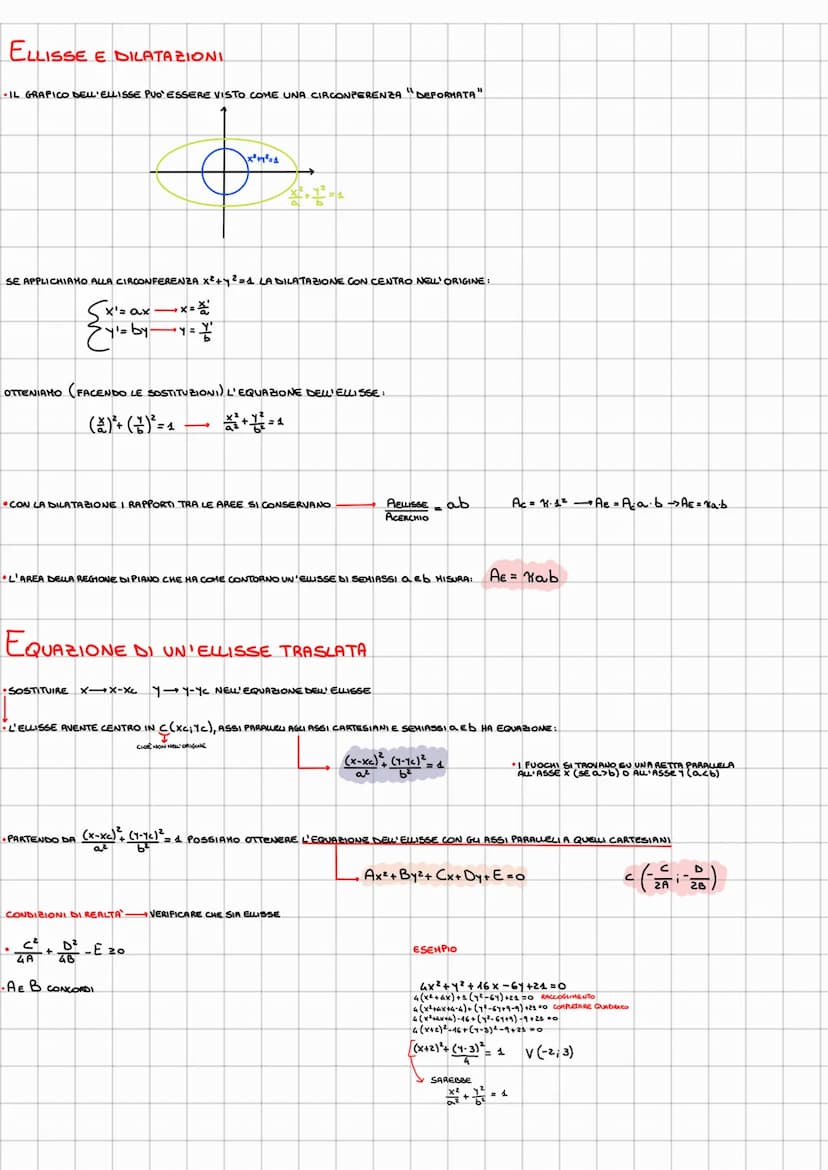 ELLISSE E DILATAZIONI
• IL GRAFICO DELL'ELLISSE PUO' ESSERE VISTO COME UNA CIRCONFERENZA "DEFORMATA"
x²+y²=1
x²/a + y²/b = 1
SE APPLICHIAMO ALLA CIRCONFERENZA x²+y²=1 LA DILATAZIONE CON CENTRO NELL'ORIGINE:
{ x'=ax → x = x'/a
y'=by → y = y'/b
OTTENIAMO (FACENDO LE SOSTITUZIONI) L'EQUAZIONE DELL'ELLISSE:
(x/a)²+(y/b)²=1 → x²/a²+y²/b²=1
• CON LA DILATAZIONE I RAPPORTI TRA LE AREE SI CONSERVANO → AELLISSE/ACERCHIO = ab Ac = π·1² → AE = Ac·a·b → AE = πa·b
• L'AREA DELLA REGIONE DI PIANO CHE HA COME CONTORNO UN'ELLISSE DI SEMIASSI a e b MISURA: AE = πab
EQUAZIONE DI UN'ELLISSE TRASLATA
• SOSTITUIRE x → x-xc y → y-yc NELL'EQUAZIONE DELL'ELLISSE
• L'ELLISSE AVENTE CENTRO IN C(xc;yc), ASSI PARALLELI AGLI ASSI CARTESIANI E SEMIASSI a e b HA EQUAZIONE:
CIOÈ NON NELL'ORIGINE
(x-xc)²/a² + (y-yc)²/b² = 1
• I FUOCHI SI TROVANO SU UNA RETTA PARALLELA
ALL'ASSE X (SE a>b) O ALL'ASSE Y (a<b)
• PARTENDO DA (x-xc)²/a² + (y-yc)²/b² = 1 POSSIAMO OTTENERE L'EQUAZIONE DELL'ELLISSE CON GLI ASSI PARALLELI A QUELLI CARTESIANI
Ax²+By²+Cx+Dy+E=0 C (-C/2A ; -D/2B)
CONDIZIONI DI REALTA' → VERIFICARE CHE SIA ELLISSE
• C²/4A + D²/4B - E ≥0
• A E B CONCORDI
ESEMPIO
4x²+y²+16x-6y+21=0
4(x²+4x)+1(y²-6y)+21=0 RACCOGLIMENTO
4(x²+4x+4-4)+(y²-6y+9-9)+21=0 COMPLETARE QUADRATO
4(x²+4x+4)-16+(y²-6y+9)-9+21=0
4(x+2)²-16+(y-3)²-9+21=0
(x+2)²+(y-3)²/4=1 V(-2;3)
SAREBBE
x²/a²+y²/b²=1